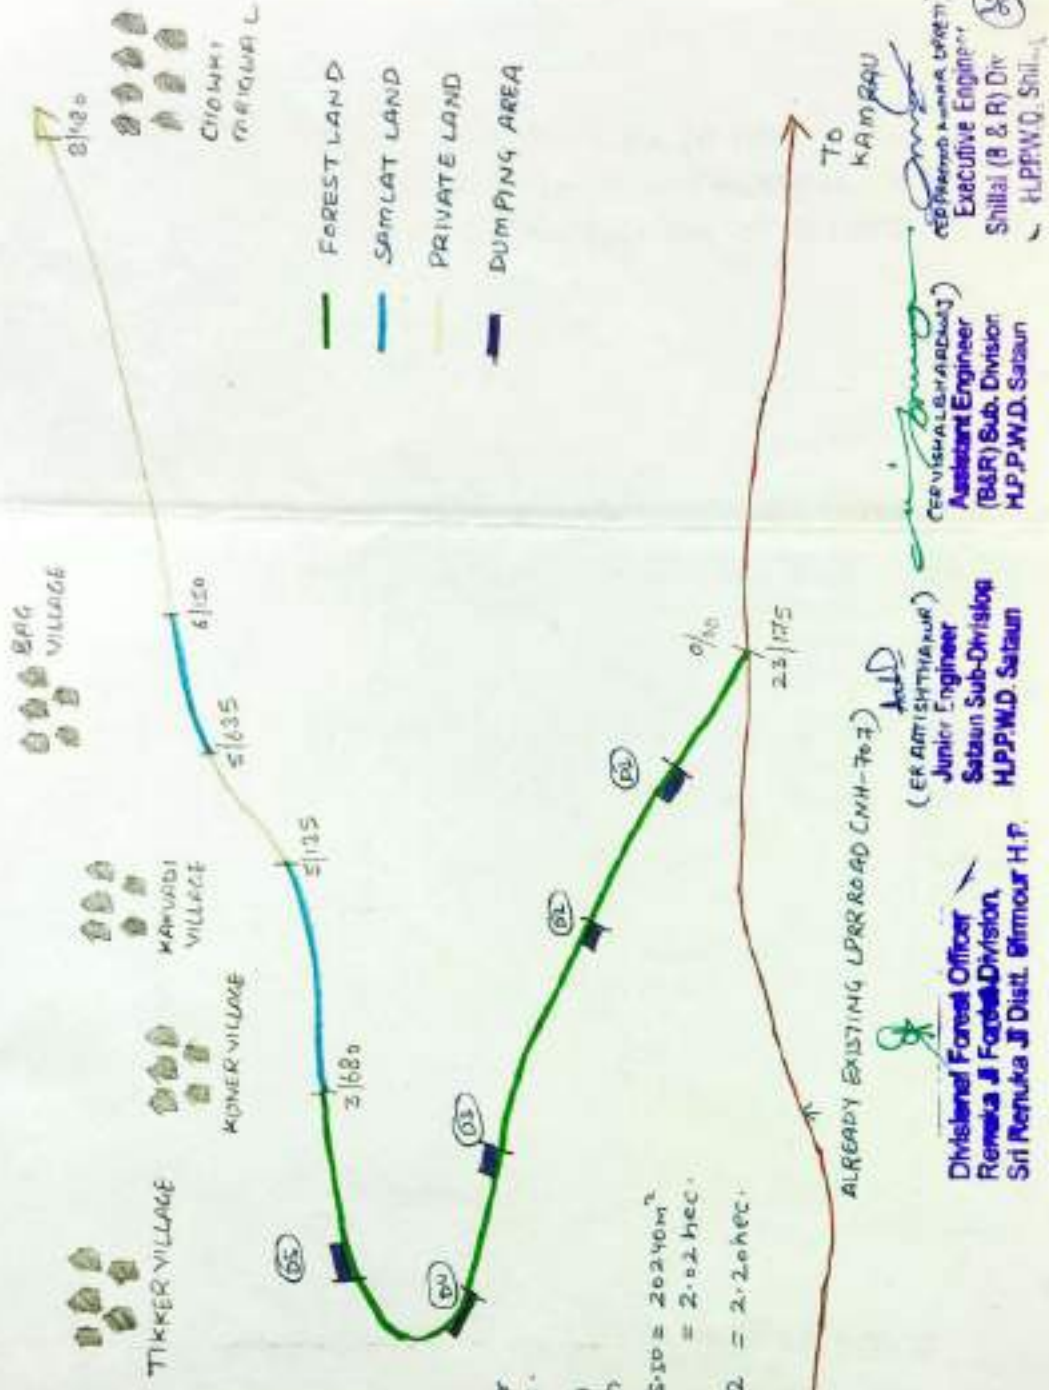 TIKKER VILLAGE
KONER VILLAGE
KAMVADI
VILLAGE
BAG
VILLAGE
CHOWKI
8/480
6/150
5/635
5/135
3/680
FOREST LAND
SAMLAT LAND
PRIVATE LAND
DUMPING AREA
D5
D4
D3
D2
D1
0/00
23/175
TO
KAMRAU
= 20240m²
= 2.02 hec.
= 2.20 hec.
ALREADY EXISTING LPRR ROAD (NH-707)
Divisional Forest Officer
Renuka Ji Forest Division,
Sri Renuka Ji Distt. Sirmour H.P.
(ER AATISH THAKUR)
Junior Engineer
Sataun Sub-Division
H.P.P.W.D. Sataun
(ER VISHAL BHARDWAJ)
Assistant Engineer
(B&R) Sub. Division
H.P.P.W.D. Sataun
Executive Engineer
Shillai (B & R) Div
H.P.P.W.D. Shil